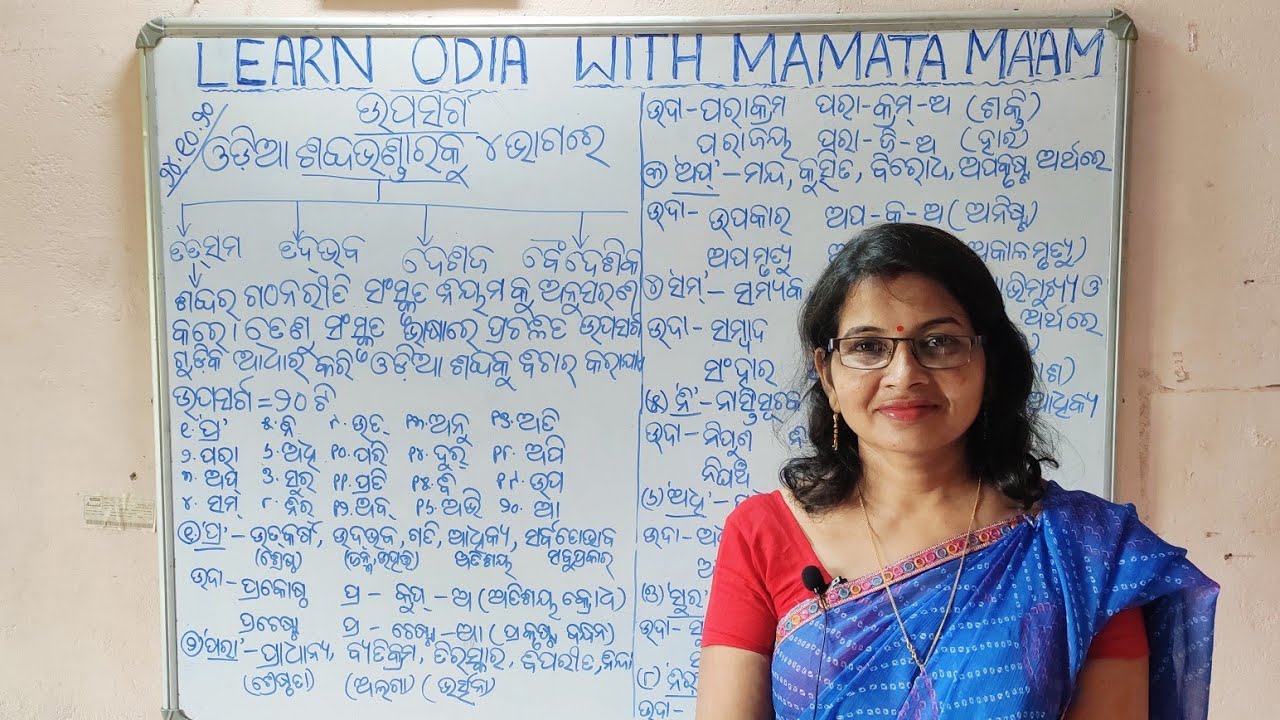 LEARN ODIA WITH MAMATA MA'AM
ଉପସର୍ଗ
ଓଡ଼ିଆ ଶବ୍ଦଭଣ୍ଡାରକୁ ୪ ଭାଗରେ
ତତ୍ସମ ତଦ୍ଭବ ଦେଶଜ ବୈଦେଶିକ
ଶବ୍ଦର ଗଠନରୀତି ସଂସ୍କୃତ ନିୟମକୁ ଅନୁସରଣ
କରେ। ତେଣୁ ସଂସ୍କୃତ ଭାଷାରେ ପ୍ରଚଳିତ ଉପସର୍ଗ
ଗୁଡ଼ିକ ଆଧାର କରି ଓଡ଼ିଆ ଶବ୍ଦକୁ ବିଚାର କରାଯାଏ
ଉପସର୍ଗ = ୨୦ ଟି
୧. 'ପ୍ର' ୫. ନି ୯. ଉତ୍ ୧୩. ଅନୁ ୧୭. ଅତି
୨. ପରା ୬. ଅଧି ୧୦. ପରି ୧୪. ଦୁର୍ ୧୮. ଅପି
୩. ଅପ ୭. ସୁର୍ ୧୧. ପ୍ରତି ୧୫. ବି ୧୯. ଉପ
୪. ସମ୍ ୮. ନିର୍ ୧୨. ଅବ ୧୬. ଅଭି ୨୦. ଆ
(୧) 'ପ୍ର' - ଉତ୍କର୍ଷ, ଉଦ୍ଭବ, ଗତି, ଆଧିକ୍ୟ, ସର୍ବତୋଭାବ
(ଶ୍ରେଷ୍ଠ) ଅତିଶୟ ସବୁପ୍ରକାର
ଉଦା - ପ୍ରକୋପ ପ୍ର - କୁପ୍ - ଅ (ଅତିଶୟ କ୍ରୋଧ)
ପ୍ରଚେଷ୍ଟା ପ୍ର - ଚେଷ୍ଟା - ଆ
(୨) 'ପରା' - ପ୍ରାଧାନ୍ୟ, ବ୍ୟତିକ୍ରମ, ତିରସ୍କାର, ବିପରୀତ, ନିନ୍ଦା
(ଶ୍ରେଷ୍ଠତା) (ଅଲଗା) (ଭର୍ତ୍ସନା)
ଉଦା - ପରାକ୍ରମ ପରା - କ୍ରମ୍ - ଅ (ଶକ୍ତି)
ପରାଜୟ ପରା - ଜି - ଅ (ହାର)
(୩) 'ଅପ' - ମନ୍ଦ, କୁତ୍ସିତ, ବିରୋଧ, ଅପକୃଷ୍ଟ ଅର୍ଥରେ
ଉଦା - ଉପକାର ଅପ - କୃ - ଅ (ଅନିଷ୍ଟ)
ଅପମୃତ୍ୟୁ ଅକାଳ ମୃତ୍ୟୁ)
୪ 'ସମ୍' - ସମ୍ୟକ ଓ
ଉଦା - ସମ୍ବାଦ ଅର୍ଥରେ
ସଂହାର
(୫) 'ନି' - ଆଧିକ୍ୟ
ଉଦା - ନିପୁଣ
(୬) 'ଅଧି' -
ଉଦା -
(୭) 'ସୁର'
ଉଦା -
(୮) 'ନିର୍
ଉଦା -